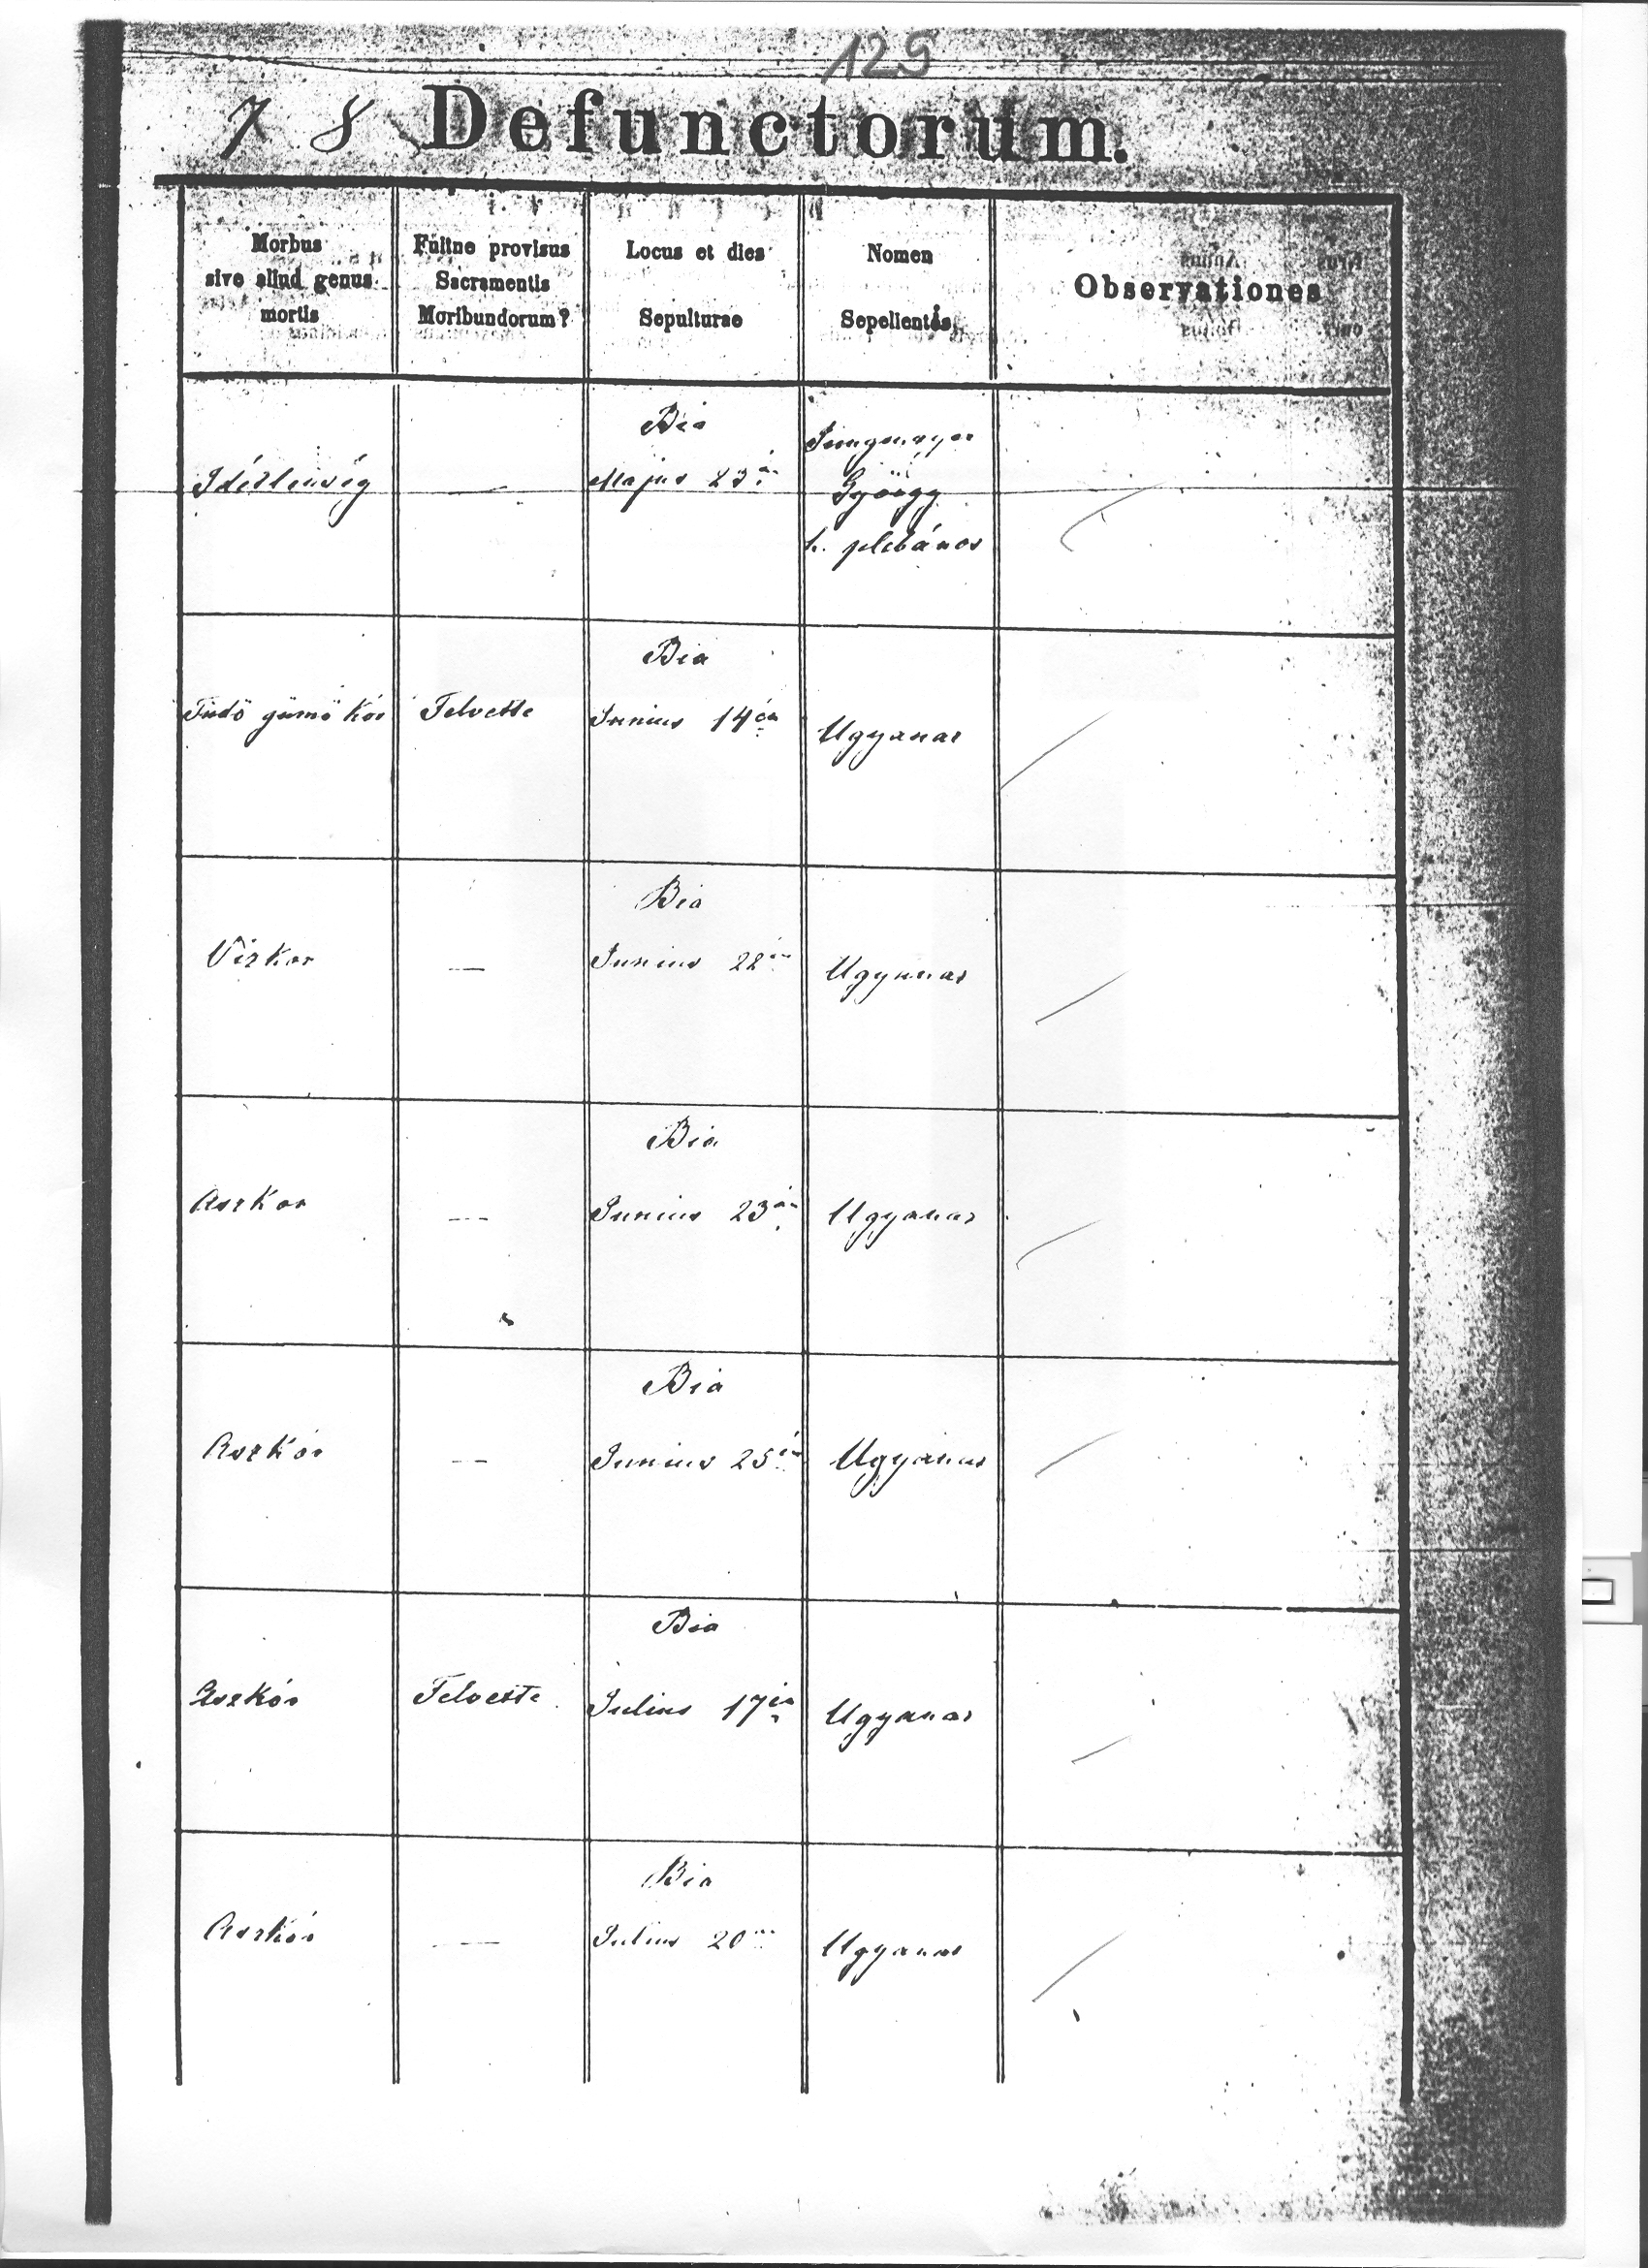 129
7 8 Defunctorum.
Morbus
sive aliud genus
mortis
Fuitne provisus
Sacramentis
Moribundorum?
Locus et dies
Sepulturae
Nomen
Sepelientis
Observationes
Idétlenség
—
Bia
Majus 23án
Jungmayer
György
h. plebános
Tüdő gümő kór
Felvette
Bia
Junius 14én
Ugyanaz
Vízkór
—
Bia
Junius 22én
Ugyanaz
Aszkor
—
Bia
Junius 23án
Ugyanaz
Aszkór
—
Bia
Junius 25én
Ugyanaz
Aszkór
Felvette
Bia
Julius 17én
Ugyanaz
Aszkór
—
Bia
Julius 20án
Ugyanaz